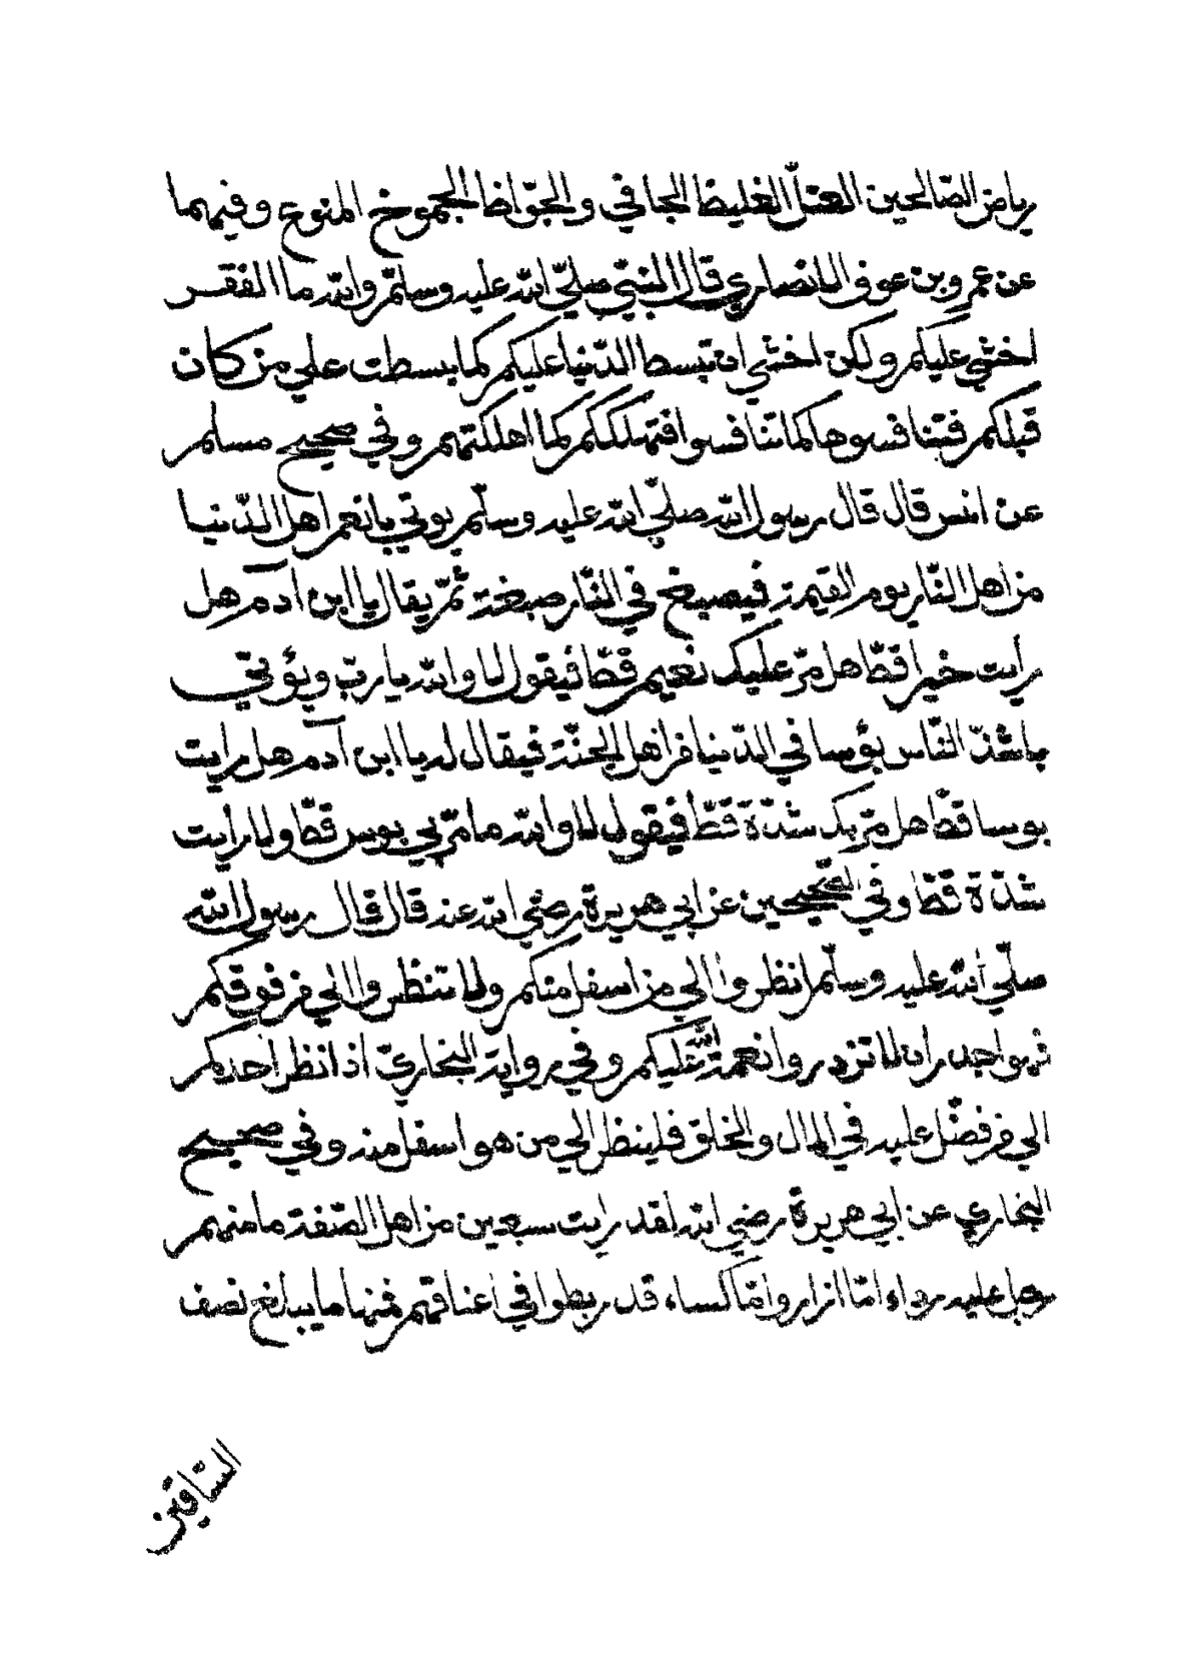 رياض الصّالحين العتلّ الغليظ الجافي والجوّاظ الجموخ المنوع وفيهما
عن عمرو بن عوف الانصاري قال النبيّ صليّ الله عليه وسلّم والله ما الفقر
اخشي عليكم ولكن اخشي ان تبسط الدّنيا عليكم كما بسطت علي من كان
قبلكم فتنافسوها كما تنافسوا فتهلككم كما اهلكتهم وفي صحيح مسلم
عن انس قال قال رسول الله صليّ الله عليه وسلّم يوتي بانعم اهل الدّنيا
من اهل النّار يوم القيمة فيصبغ في النّار صبغة ثمّ يقال يا ابن آدم هل
رأيت خيرا قطّ هل مرّ عليك نعيم قطّ فيقول لا والله يا ربّ ويؤتيّ
باشدّ النّاس بؤسا في الدّنيا من اهل الجنّة فيقال له يا ابن آدم هل رايت
بوسا قطّ هل مرّ بك شدّة قطّ فيقول لا والله ما مرّ بي بوس قطّ ولا رأيت
شدّة قطّ وفي الصّحيحين عن ابي هريرة رضي الله عنه قال قال رسول الله
صلّي الله عليه وسلّم انظروا الي من اسفل منكم ولا تنظروا الي من فوقكم
فهو اجدر ان لا تزدروا نعمة الله عليكم وفي رواية البخاريّ اذا نظر احدكم
الي من فضّل عليه في المال والخلق فلينظر الي من هو اسفل منه وفي صحيح
البخاري عن ابي هريرة رضي الله لقد رايت سبعين من اهل الصّفة ما منهم
رجل عليه رداء امّا ازار وامّا كساء قد ربطوا في اعناقهم فمنها ما يبلغ نصف
السّاقين